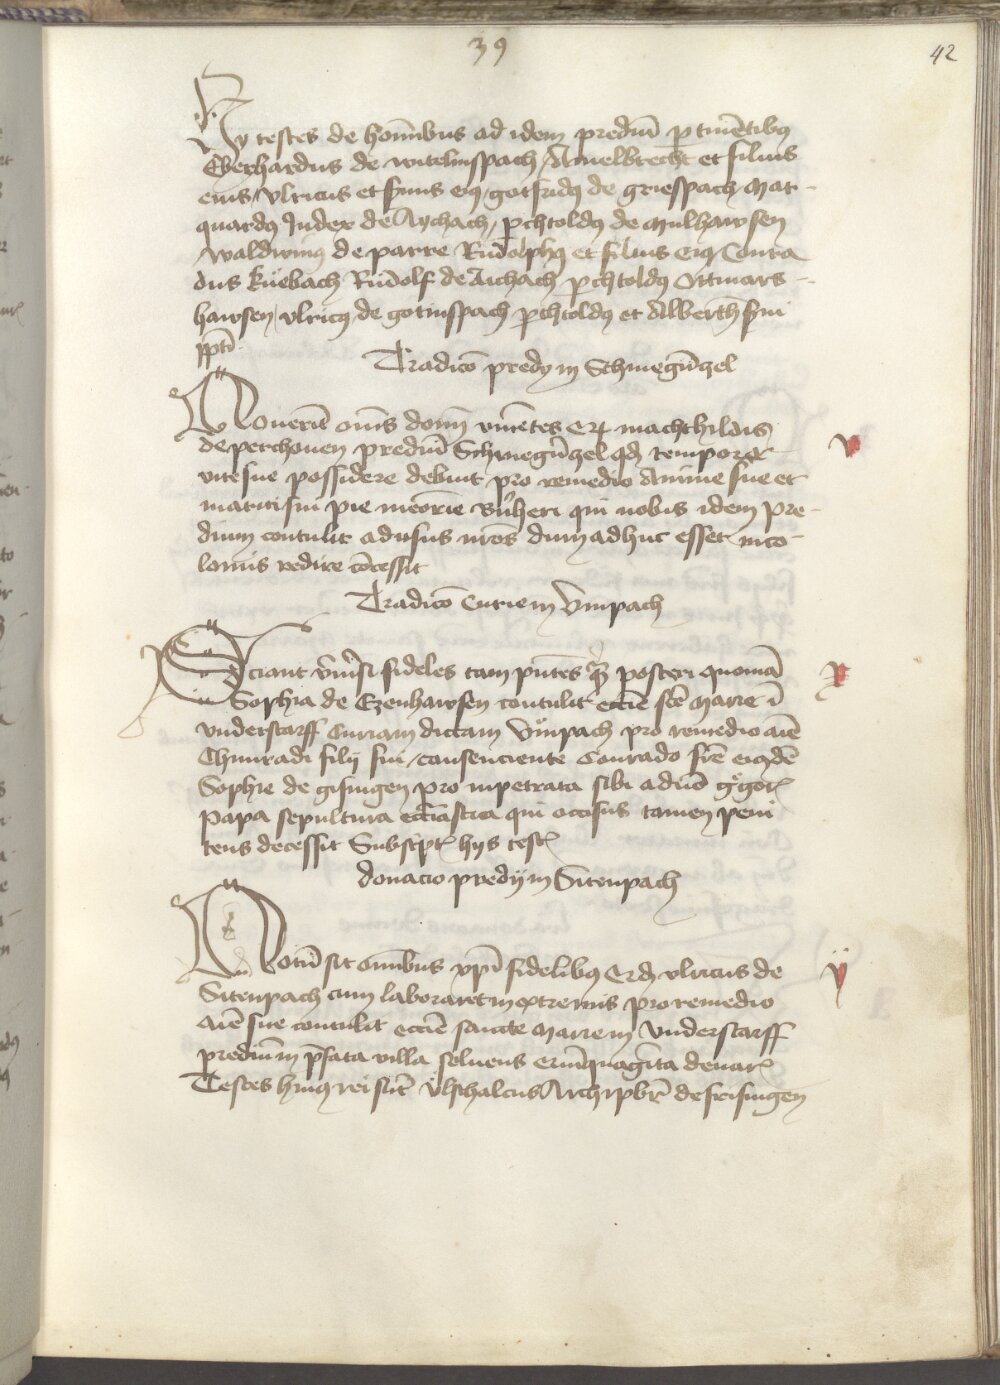 39
42
Hy testes de hominibus ad idem prediū ptinētibꝯ
Eberhardus de witelinspach Amelbrecht et filius
eius Vlricus et frīus eiꝯ gotfridꝯ de griespach Mar-
quardꝯ Judex de Aychach, pchtoldꝯ de Mulhawsen
Waldwinꝯ de parre Rudolphꝯ et filius eiꝯ Conra
dus kuebach Rudolf de Aichach pchtoldꝯ Ottmars-
hawsen Vlricꝯ de gotinspach pchtoldꝯ et Alberth
ppti
Tradicō predy in Schmegūczel
Nouerīt om̄s domī viuētes qꝫ machthildis
de perchouen prediū Schmegūczel qd tempora
vite sue possidere debuit pro remedio Anime sue et
mariti sui pie meōrie Rūheri qui nobis idem pre-
dium contulit ad usus nr̄os dum adhuc esset inco-
lomis redire cōcessit
v
Tradicō Curie in Vmpach
Sciant vniūsi fideles tam pn̄tes qꝫ posteri quoniā
Sophia de Ezenhawsen contulit eccīe scē Marie ī
vnderstorff Curiam dictam Vmpach pro remedio aīe
Chunradi filij sui consenciente Conrado frē eiꝯdē
Sophie de gisingen pro inpetrata sibi a dn̄o gͤgor
Papa sepultura ecclīastica qui occisus tamen peni
tens decessit Subscpt hys test
x
donacio predij in Sitenpach
Notū sit omībus xp̄i fidelibꝯ qd vlricus de
Sitenpach cum laboraret in extremis pro remedio
aīe sue contulit eccīe sancte Marie in Vnderstorff
prediū in p̄fata villa soluens quīquagīta denar
Testes huiꝯ rei sūt Vlschalcus Archipbr̄ de frisingen
y